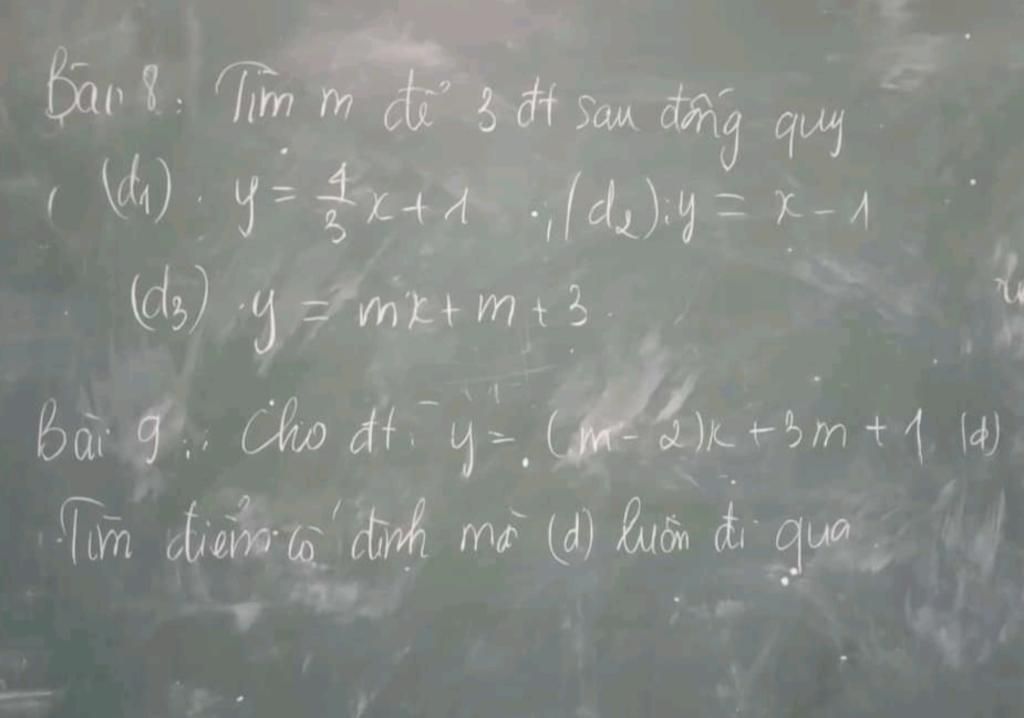 Bài 8: Tìm m để 3 đt sau đồng quy
(d1): y = 4/3 x + 1 ; (d2): y = x - 1
(d3): y = mx + m + 3
Bài 9: Cho đt: y = (m - 2)x + 3m + 1 (d)
Tìm điểm cố định mà (d) luôn đi qua